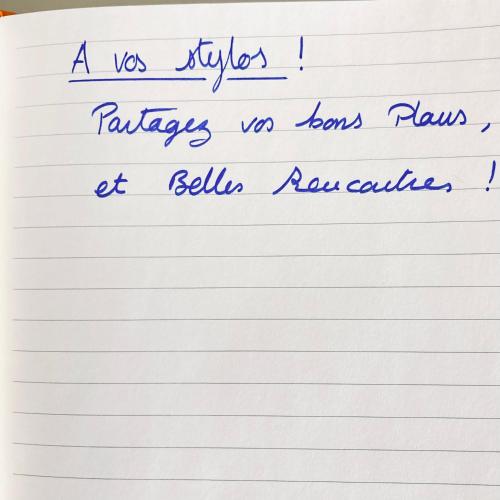 A vos stylos !
Partagez vos bons Plans,
et Belles Rencontres !